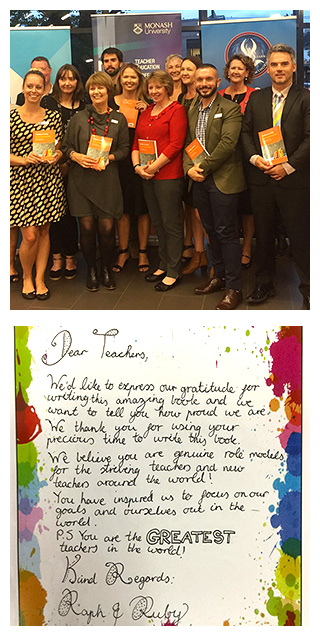 MONASH
University
TEACHER
EDUCATION
Dear Teachers,
We'd like to express our gratitude for
writing this amazing book and we
want to tell you how proud we are.
We thank you for using your
precious time to write this book.
We believe you are genuine role models
for the striving teacher and new
teachers around the world!
You have inspired us to focus on our
goals and ourselves out in the
world.
P.S You are the GREATEST
teachers in the world!
Kind Regards:
Raph & Ruby